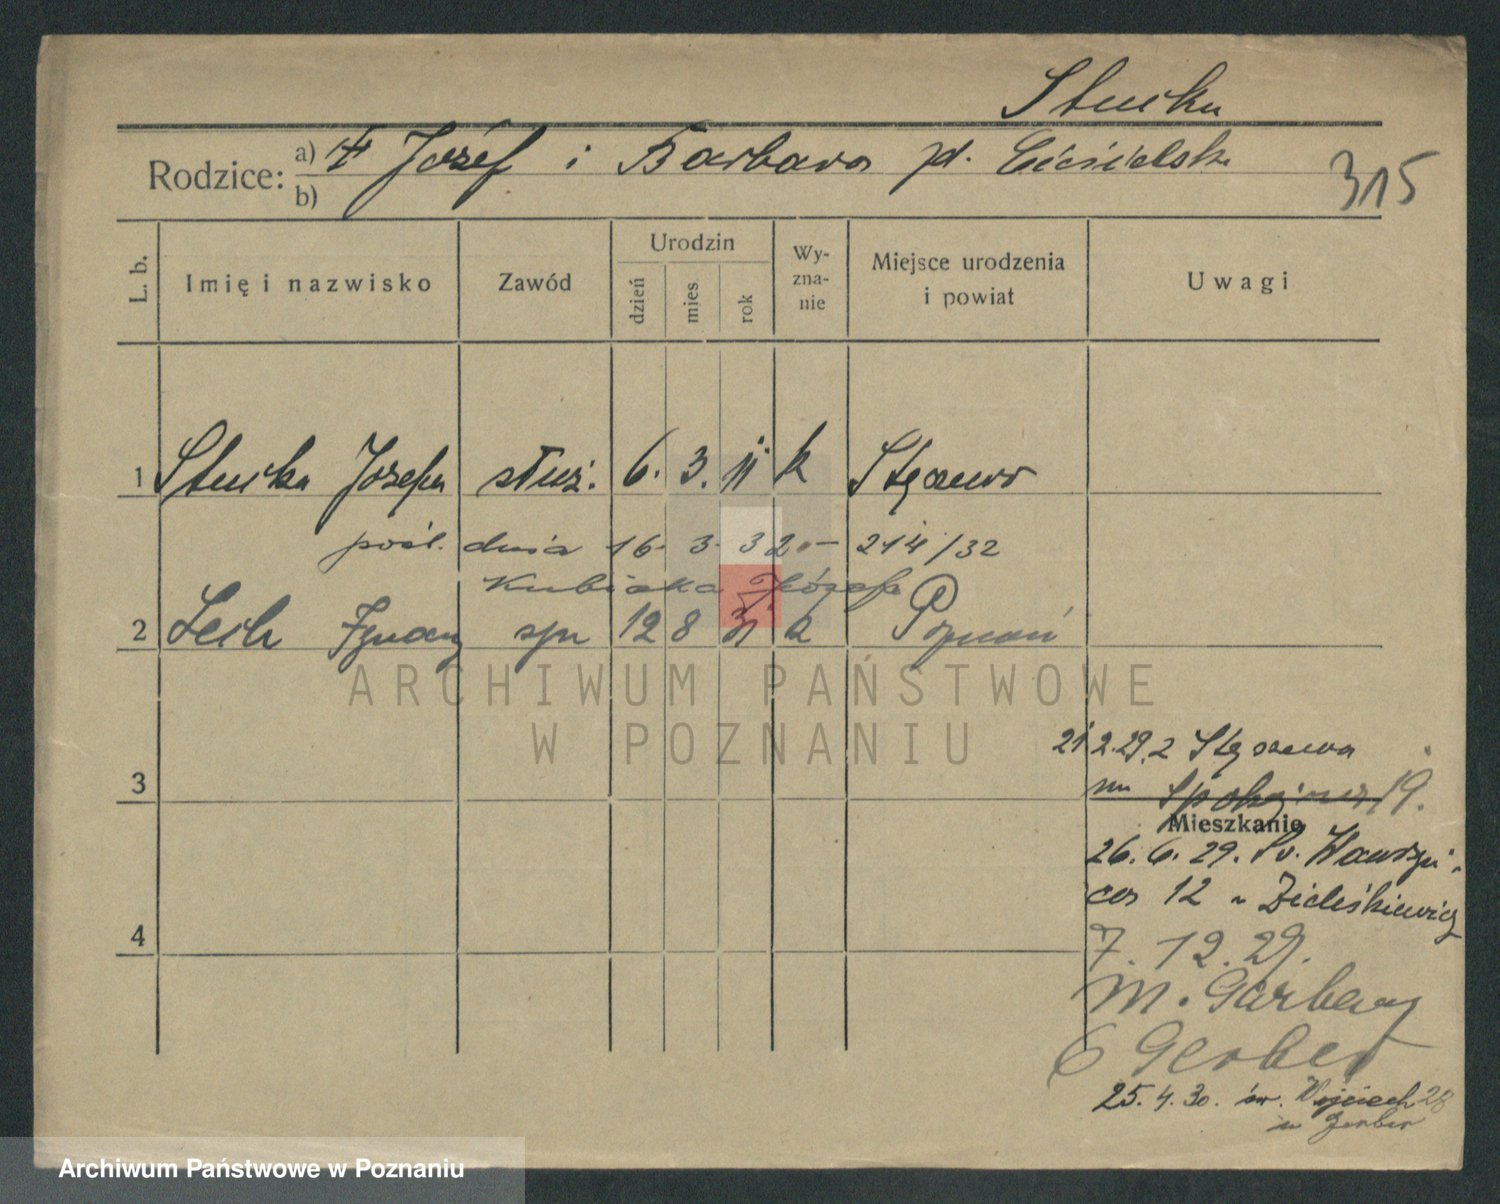 Stucka
Rodzice: a) Józef i Barbara zd. Cieśielska
b)
315
L. b. Imię i nazwisko Zawód Urodzin dzień mies rok Wy-zna-nie Miejsce urodzenia i powiat Uwagi
1 Stucka Józefa służ. 6. 3. 11 k Stęszewo
dnia 16. 3. 32 – 214/32
Kubiaka Józefa
2 Lech Ignacy 12 8 31 k Poznań
ARCHIWUM PAŃSTWOWE
W POZNANIU
21 2.29. z Stęszewa
3
Spokojna 19.
Mieszkanie
26. 6. 29. Św. Wawrzyń-
ca 12 u Zieleśkiewicz
4
7. 12. 29.
M. Garbary
6 Gerber
25. 4. 30. św. Wojciech 28
u Gerber
Archiwum Państwowe w Poznaniu